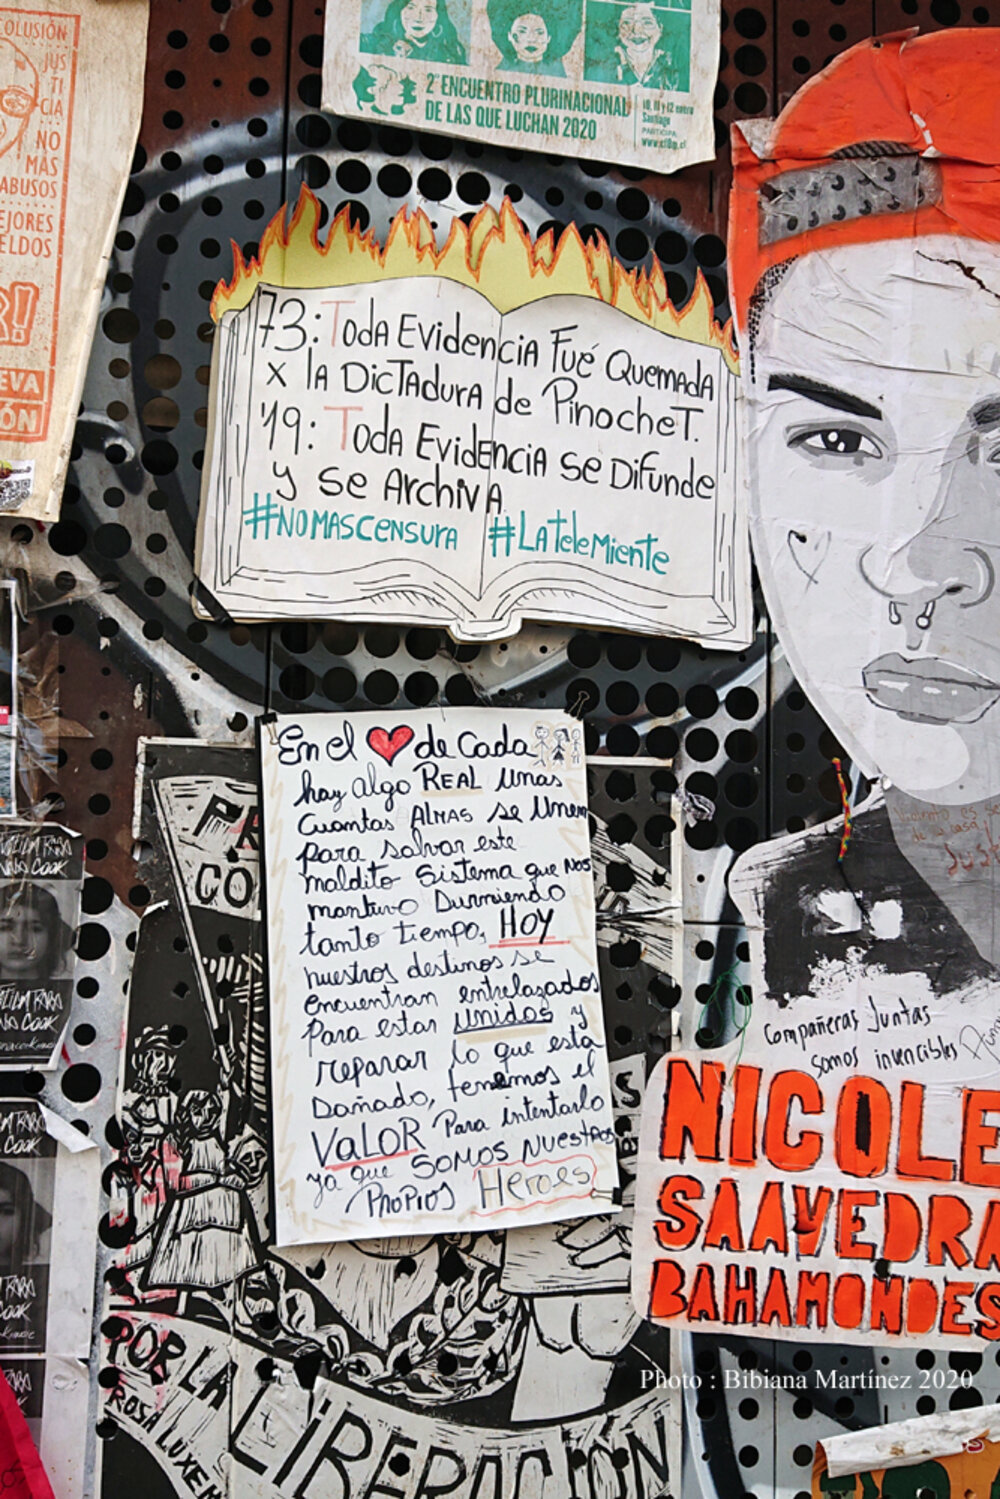 COLUSIÓN
JUS
TI
CIA
NO
MÁS
ABUSOS
EJORES
ELDOS
R!
EVA
ÓN
2° ENCUENTRO PLURINACIONAL
DE LAS QUE LUCHAN 2020
10, 11 y 12 enero
Santiago
PARTICIPA
73: Toda Evidencia Fué Quemada
x la Dictadura de Pinochet.
'19: Toda Evidencia se Difunde
y se Archiva
#NOMASCENSURA #LaTeleMiente
En el ❤ de Cada
hay algo REAL unas
Cuantas ALMAS se unen
para salvar este
maldito sistema que nos
mantuvo Durmiendo
tanto tiempo, HOY
nuestros destinos se
encuentran entrelazados
Para estar unidos y
reparar lo que esta
Dañado, tenemos el
VALOR Para intentarlo
ya que SOMOS NUESTROS
PROPIOS Heroes
CO
POR LA LIBERACIÓN
ROSA LUXEM
Compañeras Juntas
somos invencibles
NICOLE
SAAVEDRA
BAHAMONDES
Photo : Bibiana Martínez 2020